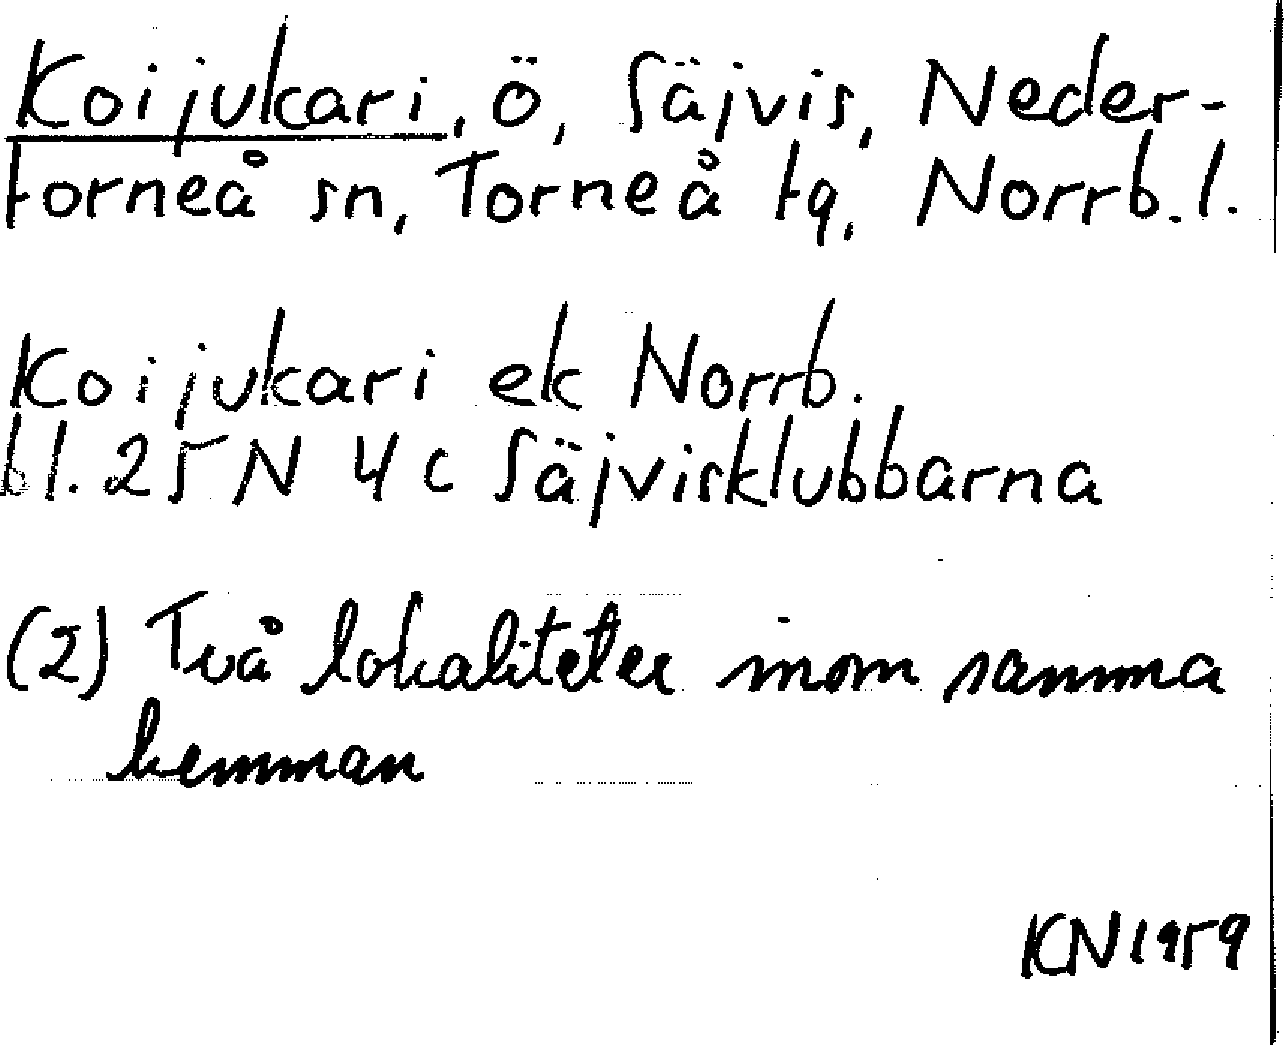 Koijukari, ö, Säjvis, Neder-
torneå sn, Torneå tg, Norrb. l.
Koijukari ek Norrb.
bl. 25 N 4 c Säjvisklubbarna
(2) Två lokaliteter inom samma
hemman
KN 1959